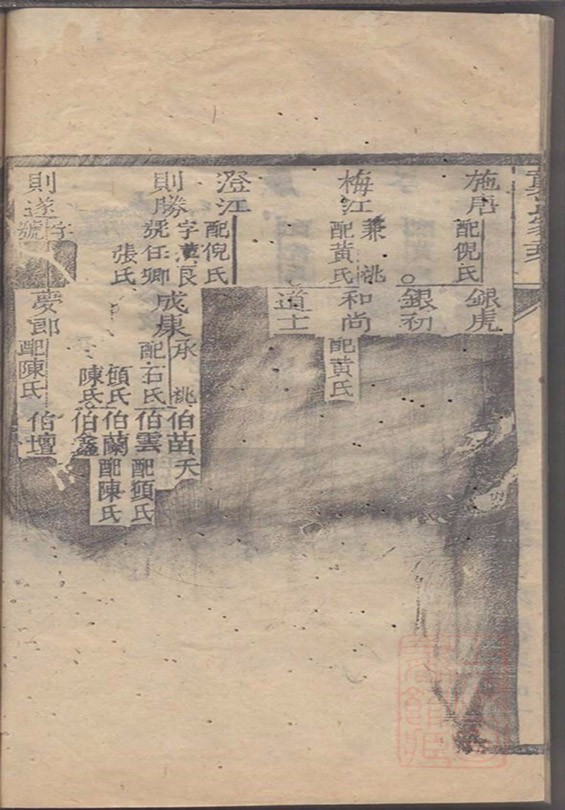 施唐
配倪氏
銀虎
銀初
梅江
兼祧
配黃氏
和尚
配黃氏
道士
澄江
配倪氏
則勝
字萬良
號任卿
張氏
成康
承祧
配石氏
顧氏
陳氏
伯苗
夭
伯雲
配顧氏
伯蘭
配陳氏
伯鑫
則遂
字
號
慶郎
配陳氏
伯壇